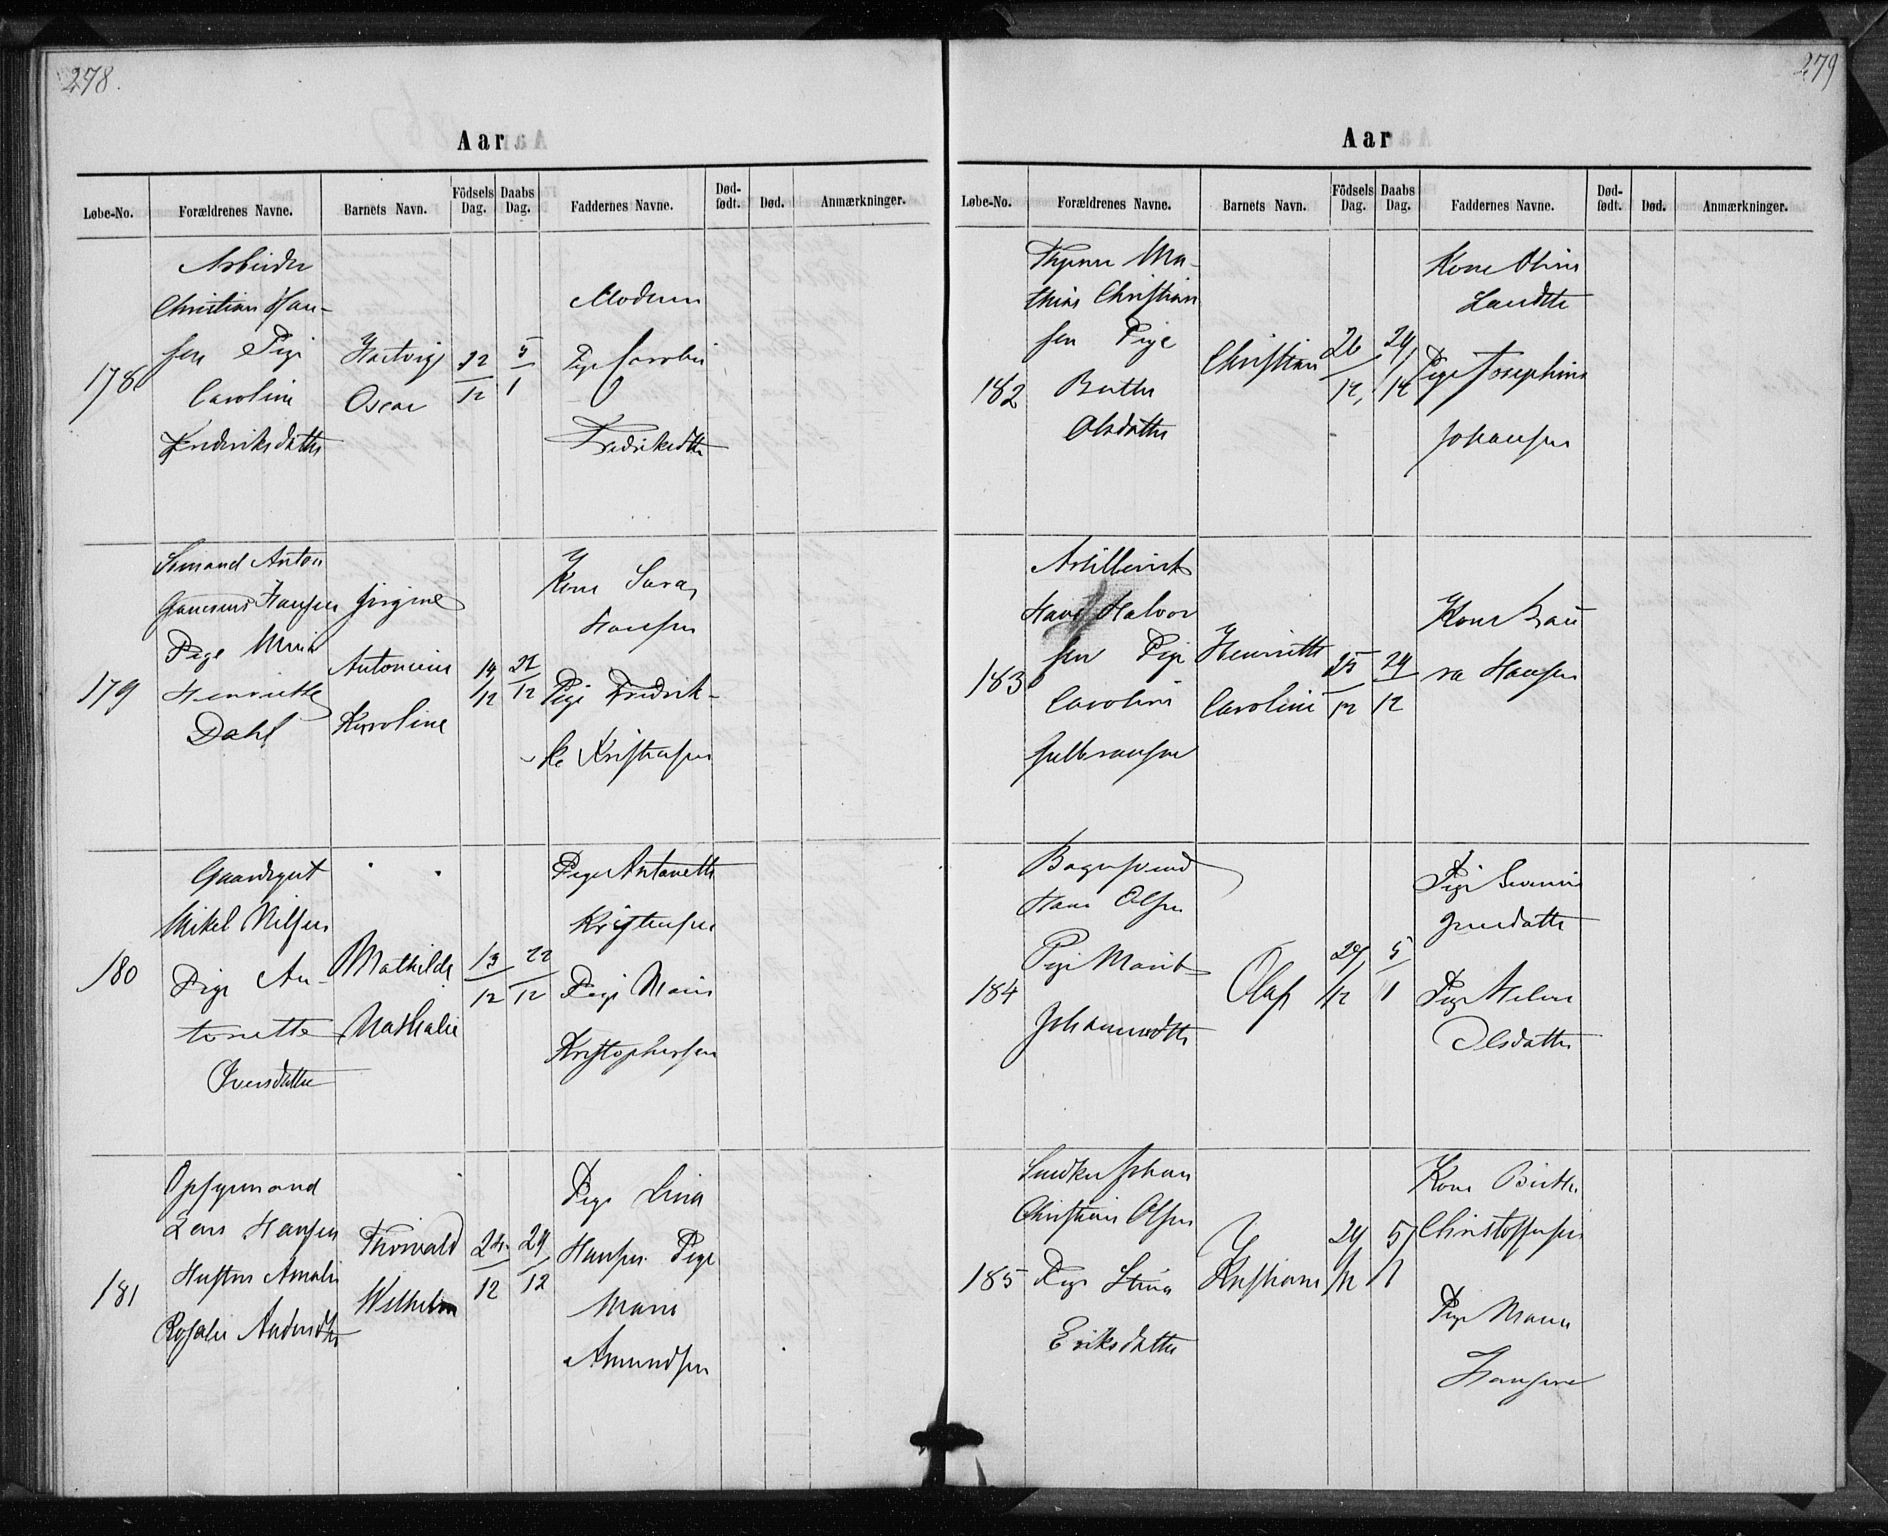 278.
Aar
Løbe-No. Forældrenes Navne. Barnets Navn. Födsels Dag. Daabs Dag. Faddernes Navne. Død-født. Død. Anmærkninger.
178
Arbeider
Christian Han-
sen Pige
Caroline
Frederiksdatter
Hartvig
Oscar
22/12
5/1
Moderen
Pige Caroline
Fredriksdtr
179
Sømand Anton
Hansen
Pige Marie
Henriette
Dahl
Jørgine
Antonine
Karoline
14/12
22/12
Kone Sara
Hansen
Pige Fredrik-
ke Kristiansen
180
Gaardsgut
Mikel Nilsen
Pige An-
tonette
Iversdatter
Mathilde
Nathalie
13/12
22/12
Pige Antonette
Kristensen
Pige Marie
Kristophersen
181
Opsynsmand
Lars Hansen
Hustru Amalie
Rosalie Andersdtr
Thorvald
Wilhelm
24/12
29/12
Pige Lina
Hansen Pige
Marie
Amundsen
279
Aar
Løbe-No. Forældrenes Navne. Barnets Navn. Födsels Dag. Daabs Dag. Faddernes Navne. Død-født. Død. Anmærkninger.
182
Ma-
thias Christian
sen Pige
Berthe
Olsdatter
Christian
26/12
29/12
Kone Oline
Pige Josephine
Johansen
183
Artillerist
Hans Halvor
sen Pige
Caroline
Gulbransen
Henriette
Caroline
25/12
29/12
Kone Lau
ra Hansen
184
Bagersvend
Hans Olsen
Pige Marit
Johannesdtr
Olaf
29/12
5/1
Pige
Jensdatter
Pige Helene
Olsdatter
185
Snedker Johan
Christian Olsen
Pige Stina
Eriksdatter
Kristiane
29/12
5/1
Kone Birthe
Christoffersen
Pige Maren
Hansen